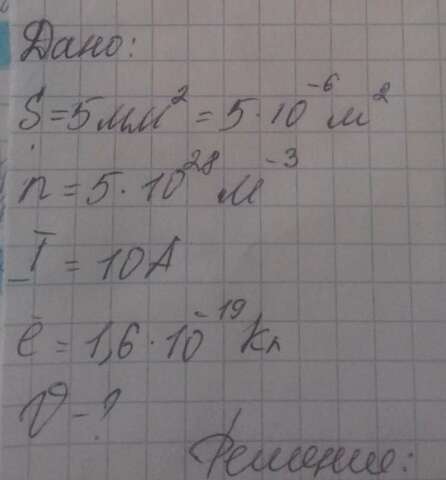 Дано:
S=5мм² = 5·10⁻⁶м²
n = 5·10²⁸ м⁻³
I = 10А
e = 1,6·10⁻¹⁹ Кл
V-?
Решение: